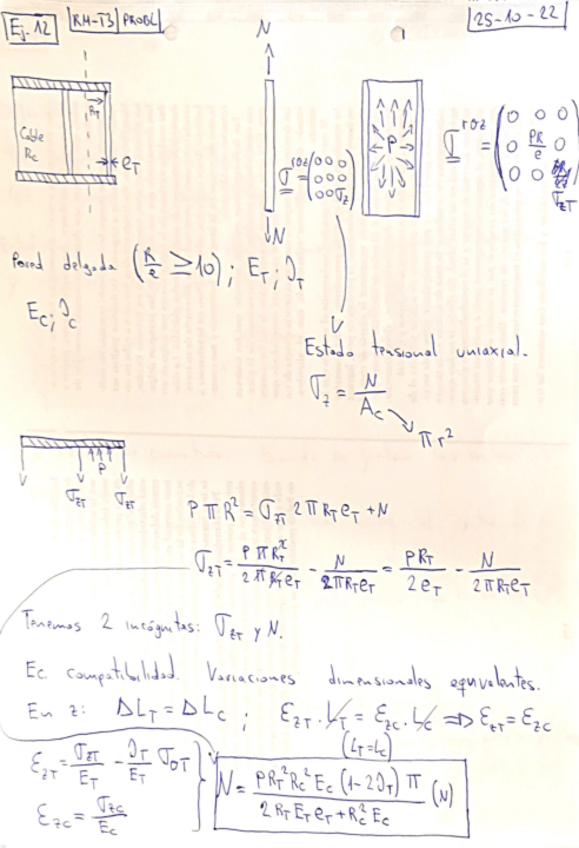 Ej. 12
RM-T3 PROBL
25-10-22
N
R_T
Cable
R_c
e_T
N
σ^{rθz} = (0 0 0
0 0 0
0 0 σ_z)
P
σ^{rθz} = (0 0 0
0 PR/e 0
0 0 σ_{zT})
Pared delgada (R/e ≥ 10); E_T; ν_T
E_c; ν_c
Estado tensional uniaxial.
σ_z = N/A_c → π r²
P
σ_{zT} σ_{zT}
P π R² = σ_{zT} 2 π R_T e_T + N
σ_{zT} = P π R_T²/2 π R_T e_T - N/2 π R_T e_T = P R_T/2 e_T - N/2 π R_T e_T
Tenemos 2 incógnitas: σ_{zT} y N.
Ec. compatibilidad. Variaciones dimensionales equivalentes.
En z: ΔL_T = ΔL_c ; ε_{zT} · L_T = ε_{zc} · L_c ⇒ ε_{zT} = ε_{zc}
(L_T = L_c)
ε_{zT} = σ_{zT}/E_T - ν_T/E_T σ_{θT}
ε_{zc} = σ_{zc}/E_c
N = P R_T² R_c² E_c (1 - 2ν_T) π / 2 R_T E_T e_T + R_c² E_c (N)